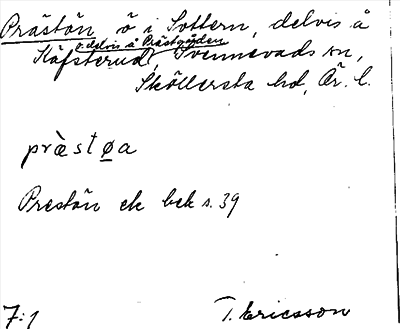 Prästön ö i Sottern, delvis å
o. delvis å Prästgården
Käfsterud, Svennevads sn,
Sköllersta hd, Ör. l.
præ̀stø̱a
Prestön ek bek s. 39
7:1
T. Ericsson